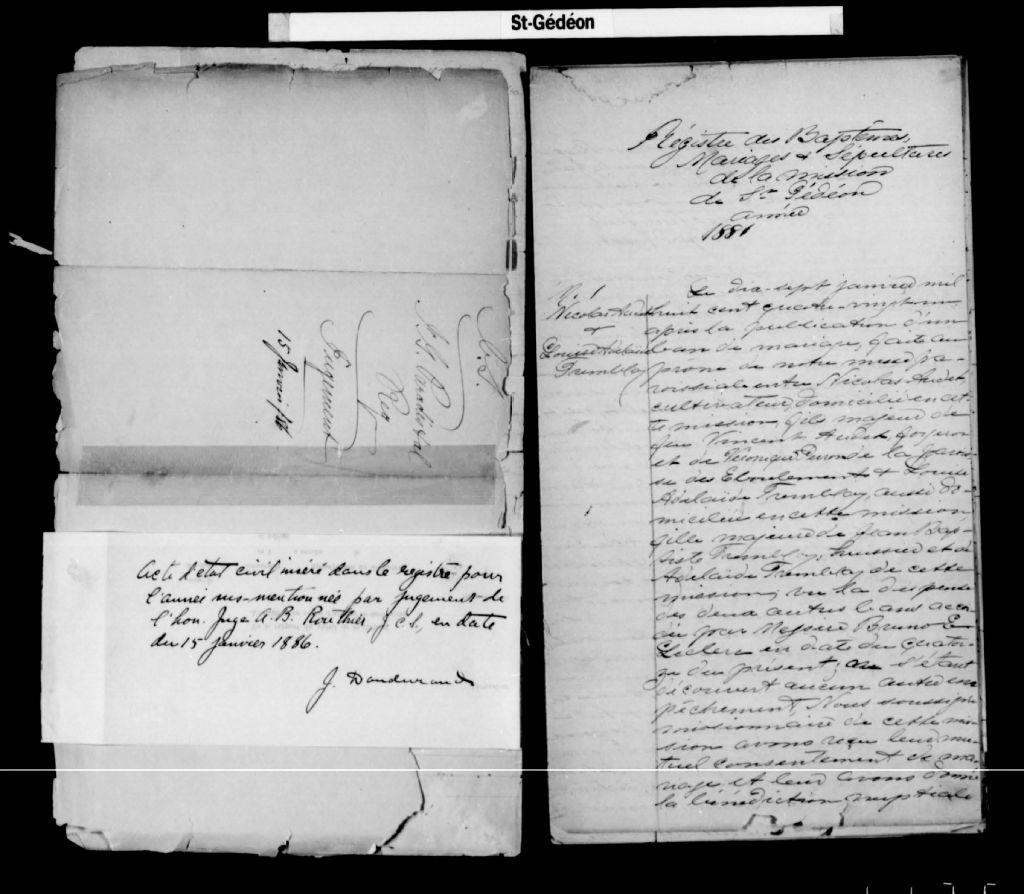 St-Gédéon
15 Janvier
Jugement
Req
Acte d'état civil inséré dans le registre pour
l'année sus-mentionnée par jugement de
l'hon. Juge A. B. Routhier, J.C.S., en date
du 15 janvier 1886.
J. Dandurand
Régistre des Baptêmes,
Mariages & Sépultures
de la mission
de St Gédéon
année
1881
Nicolas Audet
&
Louise Adélaïde
Tremblay
Le dix-sept janvier mil
huit cent quatre-vingt-un
après la publication d'un
ban de mariage, faite au
prone de notre messe pa-
roissiale entre Nicolas Audet
cultivateur, domicilié en cet-
te mission, fils majeur de
feu Vincent Audet, forgeron
et de Véronique Perron de la parois-
se des Eboulements & Louise
Adélaïde Tremblay, aussi do-
miciliée en cette mission
fille majeure de Jean Bap-
tiste Tremblay, huissier et de
Adélaïde Tremblay de cette
mission; vu la dispense
des deux autres bans accor-
dée par Messire Bruno E.
Leclerc en date du quator-
ze du présent; ne s'étant
découvert aucun autre em-
pêchement, Nous soussigné
missionnaire de cette mis-
sion avons reçu leur mu-
tuel consentement de ma-
riage et leur avons donné
la bénédiction nuptiale